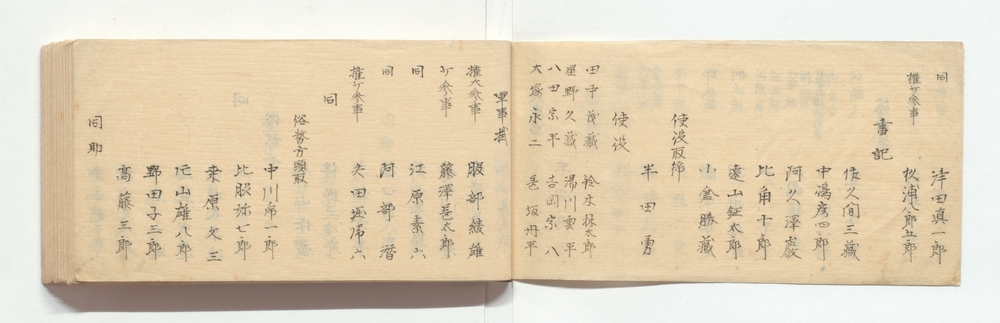 同 津田真一郎
権少参事 杉浦八郎五郎
書記
佐久間三蔵
中馮彦四郎
阿久澤巌
比角十郎
遠山鉦太郎
小倉勝蔵
使没取締
半田勇
使没
田中茂蔵 鈴木猪太郎
星野久蔵 湯川雲平
八田宗平 吉岡宗八
大塚永二 坂丹平
軍事掛
権大参事 服部綾雄
少参事 藤澤太郎
同 江原素六
同 阿部潜
権少参事 矢田堀席六
同
俗務方頭取
中川席一郎
比服弥七郎
桒原文三
片山雄八郎
野田子三郎
同助 高藤三郎